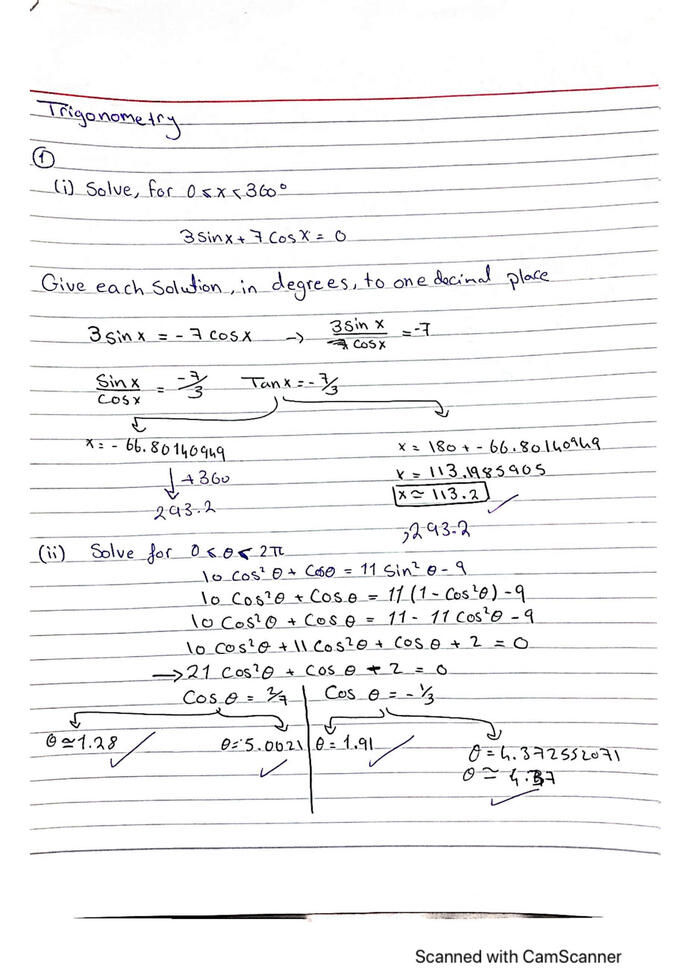 Trigonometry
①
(i) Solve, for 0 < x < 360°
3 sin x + 7 cos x = 0
Give each solution, in degrees, to one decimal place
3 sin x = - 7 cos x → 3 sin x / cos x = -7
Sin x / Cos x = -7/3 Tan x = -7/3
x = - 66.80140949 x = 180 + - 66.80140949
↓ + 360 x = 113.1985905
293.2 x ≃ 113.2
, 293.2
(ii) Solve for 0 < θ < 2π
10 cos² θ + cos θ = 11 sin² θ - 9
10 cos² θ + cos θ = 11 (1 - cos² θ) - 9
10 cos² θ + cos θ = 11 - 11 cos² θ - 9
10 cos² θ + 11 cos² θ + cos θ + 2 = 0
→ 21 cos² θ + cos θ - 2 = 0
Cos θ = 2/7 Cos θ = - 1/3
θ ≃ 1.28 θ = 5.0021 θ = 1.91 θ = 4.372552071
θ ≃ 4.37
Scanned with CamScanner